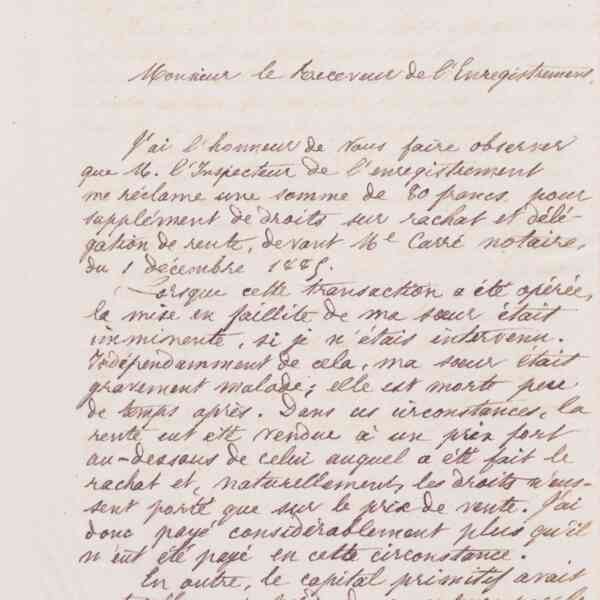 Monsieur le Receveur de l'Enregistrement,
J'ai l'honneur de vous faire observer
que M. l'Inspecteur de l'enregistrement
me réclame une somme de 80 francs pour
supplément de droits sur rachat et délé-
gation de rente, devant Me Carré notaire,
du 1 décembre 1885.
Lorsque cette transaction a été opérée,
la mise en faillite de ma sœur était
imminente, si je n'étais intervenu.
Indépendamment de cela, ma sœur était
gravement malade; elle est morte peu
de temps après. Dans ces circonstances, la
rente eut été vendue à un prix fort
au-dessous de celui auquel a été fait le
rachat et, naturellement, les droits n'eus-
sent porté que sur le prix de vente. J'ai
donc payé considérablement plus qu'il
n'eut été payé en cette circonstance.
En outre, le capital primitif avait